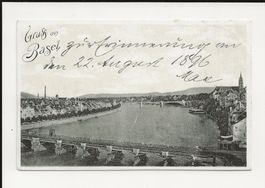 Gruss aus
Basel
zur Erinnerung an
den 22. August 1896
Max